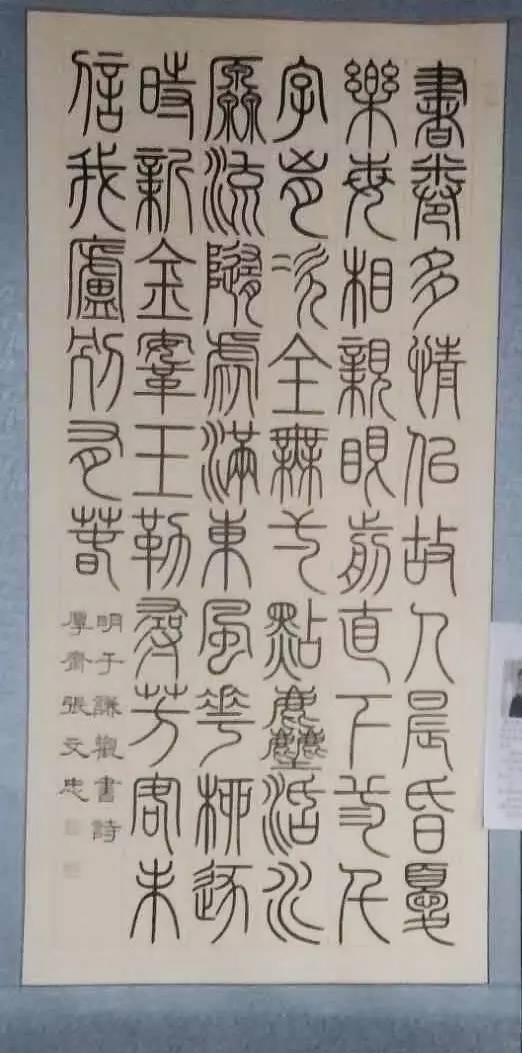 書卷多情佀故人晨昏憂
樂每相親眼前直下弎千
字匈次全無弌點塵活水
厵流隨處滿東風華柳逐
時新金鞌玉勒尋芳客未
信我廬別有春
明于謙觀書詩
厚齋張文忠